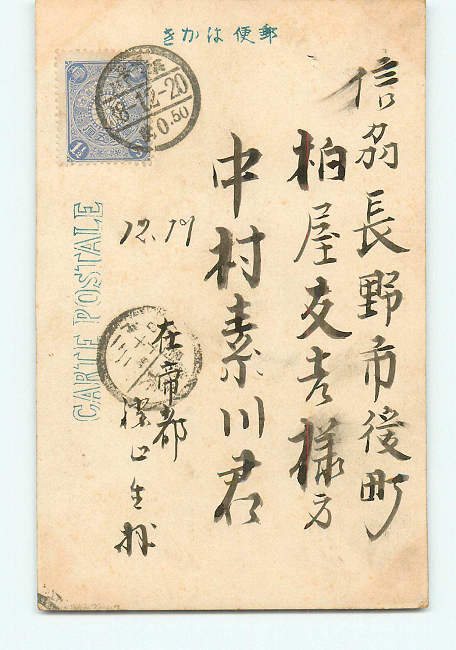 郵便はかき
信州長野市後町
柏屋友吉様方
中村素川君
12.19
在帝都
CARTE POSTALE
1½
-12-20
0.50